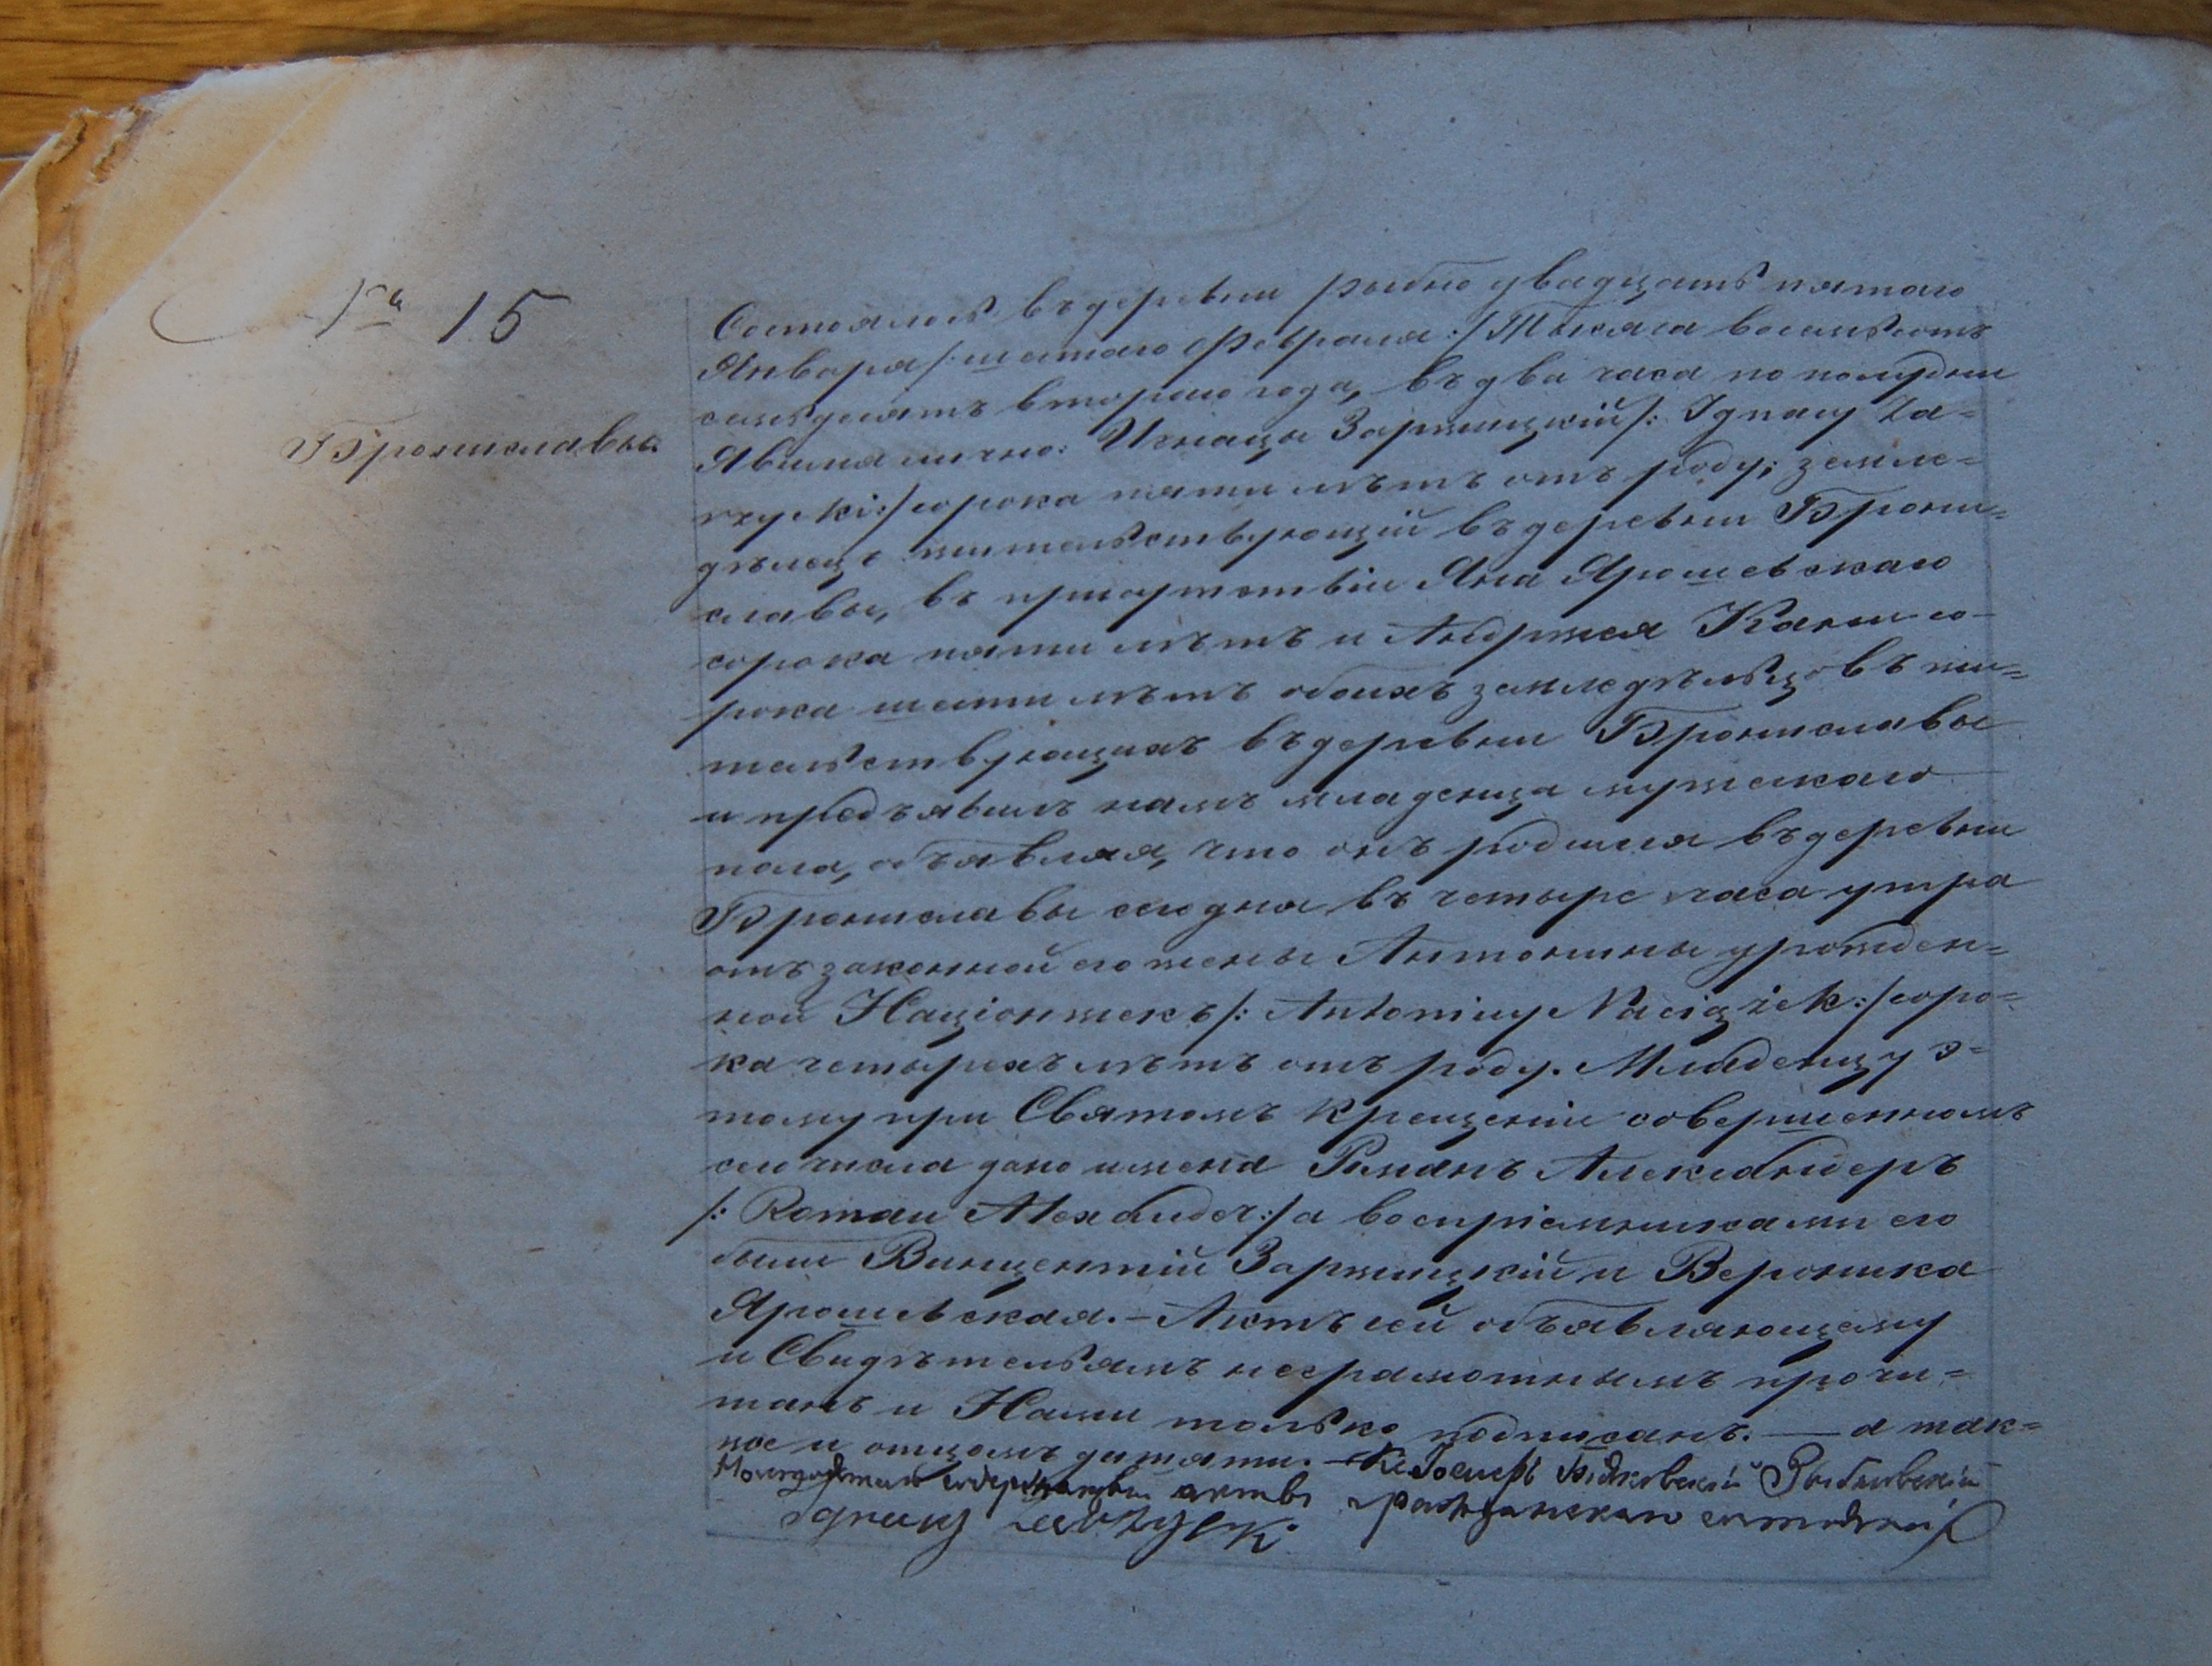 № 15
Брониславы
Состоялось въ деревни Рыбно двадцать пятаго
Января /: шестаго Февраля :/ Тысяча восемьсотъ
семьдесятъ втораго года, въ два часа по полудни
Явился лично: Игнацы Заржицкій /: Ignacy Za=
rzycki :/ сорока пяти лѣтъ отъ роду; земле=
дѣлецъ жительствующій въ деревни Брони=
славы, въ присутствіи Яна Ярошевскаго
сорока пяти лѣтъ и Андржея Кани со=
рока шести лѣтъ обоихъ земледѣльцовъ жи=
тельствующихъ въ деревни Брониславы
и предъявилъ намъ младенца мужескаго
пола, объявляя, что онъ родился въ деревни
Брониславы сего дня въ четыре часа утра
отъ законной его жены Антонины урожден=
ной Націонжекъ /: Antoniny Naciążek :/ соро=
ка четырехъ лѣтъ отъ роду. Младенцу э=
тому при Святомъ крещеніи совершенномъ
сего числа дано имена Романъ Александеръ
/: Roman Alexander :/ а воспріемниками его
были Винцентій Заржицкій и Вероника
Ярошевская. – Актъ сей объявляющему
и Свидѣтелямъ неграмотнымъ прочи=
танъ и Нами только подписанъ. — а так=
же и отцомъ дитяти. – Кс. Іосифъ Рыбновскій
содержащій акты гражданскаго состоянія
Ignacy Zarzycki